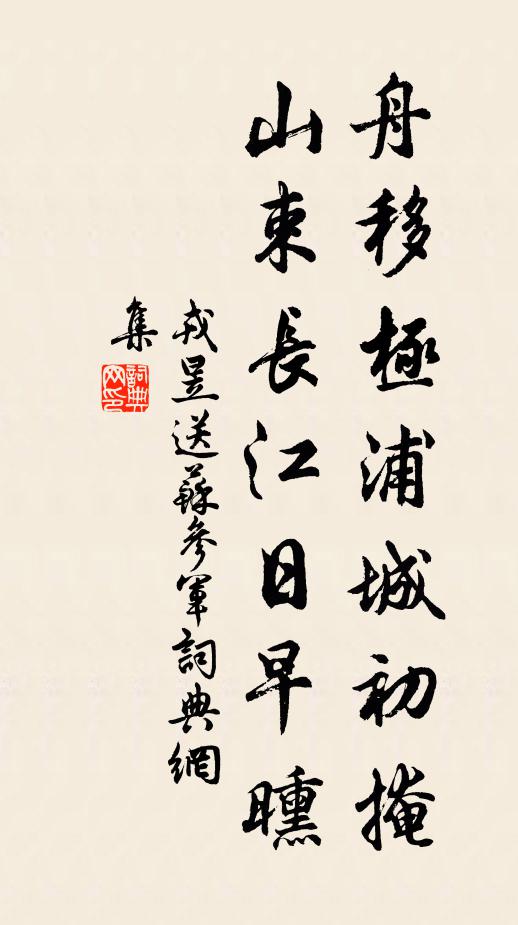 舟移極浦城初掩
山束長江日早曛
戎昱送蘇參軍詞典網
集
詞典
网印